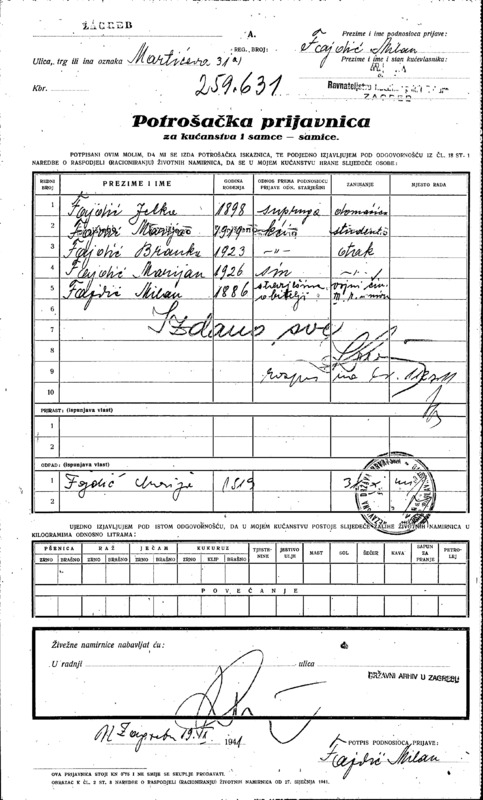 ZAGREB
Prezime i ime podnosioca prijave:
REG. BROJ:
Fajdić Milan
Ulica, trg ili ina oznaka Martićeva 31a)
Prezime i ime i stan kućevlasnika:
Kbr. 259.631
Ravnateljstvo
ZAGREB
Potrošačka prijavnica
za kućanstva i samce — samice.
POTPISANI OVIM MOLIM, DA MI SE IZDA POTROŠAČKA ISKAZNICA, TE PODJEDNO IZJAVLJUJEM POD ODGOVORNOŠĆU IZ ČL. 18 ST. 1
NAREDBE O RASPODJELI (RACIONIRANJU) ŽIVOTNIH NAMIRNICA, DA SE U MOJEM KUĆANSTVU HRANE SLIJEDEĆE OSOBE:
REDNI BROJ PREZIME I IME GODINA ROĐENJA ODNOS PREMA PODNOSIOCU PRIJAVE ODN. STARJEŠINI ZANIMANJE MJESTO RADA
1 Fajdić Jelka 1898 supruga domaćica
2 Fajdić kćer
3 Fajdić Branka 1923 -"-
4 Fajdić Marijan 1926 sin -"-
5 Fajdić Milan 1886 starješina obitelji
6
7 Izdano sve
8
9
10
PRIRAST: (ispunjava vlast)
1
2
ODPAD: (ispunjava vlast)
1 Fajdić Marija 1919
2
UJEDNO IZJAVLJUJEM POD ISTOM ODGOVORNOŠĆU, DA U MOJEM KUĆANSTVU POSTOJE SLIJEDEĆE ZALIHE ŽIVOTNIH NAMIRNICA U
KILOGRAMIMA ODNOSNO LITRAMA:
PŠENICA RAŽ JEČAM KUKURUZ TJESTENINE JESTIVO ULJE MAST SOL ŠEĆER KAVA SAPUN ZA PRANJE PETROLEJ
ZRNO BRAŠNO ZRNO BRAŠNO ZRNO BRAŠNO ZRNO KLIP BRAŠNO
POVEĆANJE
Živežne namirnice nabavljat ću:
U radnji ulica
DRŽAVNI ARHIV U ZAGREBU
U Zagrebu 19. 1941
POTPIS PODNOSIOCA PRIJAVE:
Fajdić Milan
OVA PRIJAVNICA STOJI KN 0'75 I NE SMIJE SE SKUPLJE PRODAVATI.
OBRAZAC K ČL. 2 ST. 2 NAREDBE O RASPODJELI (RACIONIRANJU) ŽIVOTNIH NAMIRNICA OD 27. SIJEČNJA 1941.